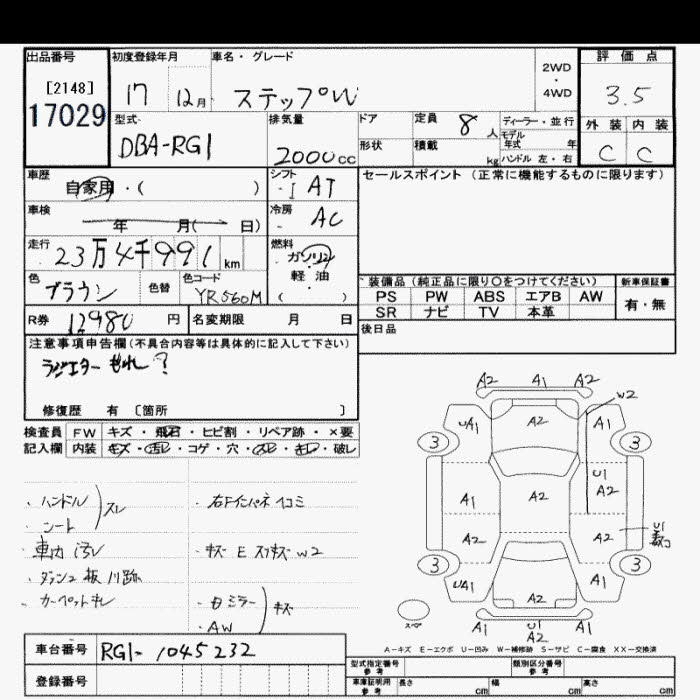 出品番号
[2148]
17029
初度登録年月
17 12月
車名・グレード
ステップW
2WD
・
4WD
評価点
3.5
型式
DBA-RG1
排気量
2000cc
ドア
定員 8人
ディーラー・並行
モデル年式 年
形状
積載 kg
ハンドル 左・右
外装 内装
C C
車歴
自家用・( )
シフト
・I AT
セールスポイント (正常に機能するものに限ります)
車検
年 月( 日)
冷房
・AC
走行
23万4千991km
燃料
ガソリン
・
軽油
( )
色
ブラウン
色替
色コード
YR560M
装備品(純正品に限り〇をつけてください)
新車保証書
PS PW ABS エアB AW
有・無
SR ナビ TV 本革
R券 12980円
名変期限 月 日
後日品
注意事項申告欄(不具合内容等は具体的に記入して下さい)
ラジエター もれ?
修復歴 有 〔箇所 〕
検査員 FW キズ・飛石・ヒビ割・リペア跡・×要
記入欄 内装 キズ・汚レ・コゲ・穴・スレ・キレ・破レ
・ハンドル
・シート
スレ
・車内汚レ
・カーペットキレ
・右Fインパネヘコミ
・キズ E スリキズ W2
・ミラー
・AW
キズ
A2 A1 A2
W2
UA1 A2 A1
3 3
A1 A2 U1 A2
A2 A2 U1
3 3
UA1 A2 A1
A1 U1 A2 A1
スペア
A-キズ E-エクボ U-凹み W-補修跡 S-サビ C-腐食 XX-交換済
車台番号 RG1-1045232
登録番号
型式指定番号 参考
類別区分番号 参考
車庫証明用 参考
長さ cm 幅 cm 高さ cm